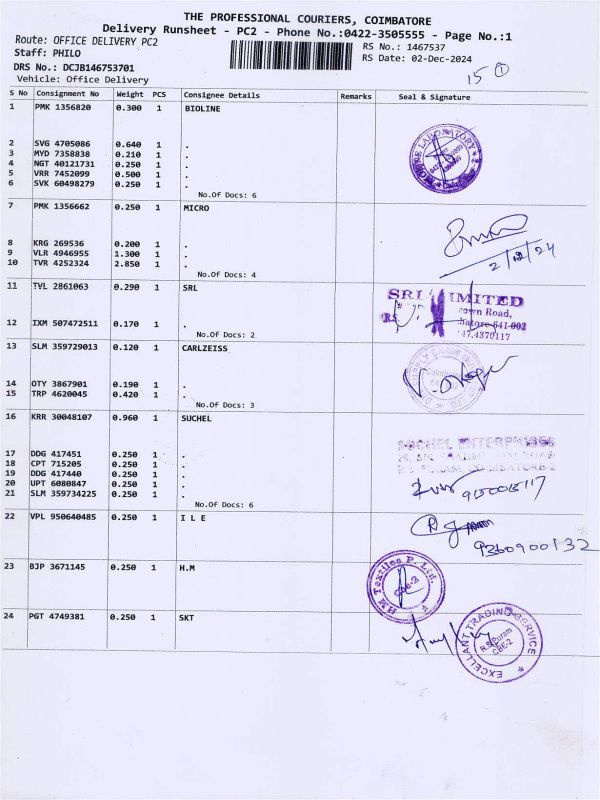 THE PROFESSIONAL COURIERS, COIMBATORE
Delivery Runsheet - PC2 - Phone No.:0422-3505555 - Page No.:1
Route: OFFICE DELIVERY PC2
Staff: PHILO
DRS No.: DCJB146753701
Vehicle: Office Delivery
RS No.: 1467537
RS Date: 02-Dec-2024
15 1
S No Consignment No Weight PCS Consignee Details Remarks Seal & Signature
1 PMK 1356820 0.300 1 BIOLINE
2 SVG 4705086 0.640 1 .
3 MYD 7358838 0.210 1 .
4 NGT 40121731 0.250 1 .
5 VRR 7452099 0.500 1 .
6 SVK 60498279 0.250 1 .
No.Of Docs: 6
LABORATORY
7 PMK 1356662 0.250 1 MICRO
8 KRG 269536 0.200 1 .
9 VLR 4946955 1.300 1 .
10 TVR 4252324 2.850 1 .
No.Of Docs: 4
2/12/24
11 TVL 2861063 0.290 1 SRL
12 IXM 507472511 0.170 1 .
No.Of Docs: 2
SRL IMITED
own Road,
batore-641 002
47,4370117
13 SLM 359729013 0.120 1 CARLZEISS
14 OTY 3867901 0.190 1 .
15 TRP 4620045 0.420 1 .
No.Of Docs: 3
16 KRR 30048107 0.960 1 SUCHEL
17 DDG 417451 0.250 1 .
18 CPT 715205 0.250 1 .
19 DDG 417440 0.250 1 .
20 UPT 6080847 0.250 1 .
21 SLM 359734225 0.250 1 .
No.Of Docs: 6
SUCHEL ENTERPRISES
R.S. PURAM, COIMBATORE-2
22 VPL 950640485 0.250 1 I L E
9360900132
23 BJP 3671145 0.250 1 H.M
H.M Textiles P. Ltd.
CBE-2
24 PGT 4749381 0.250 1 SKT
EXCELLANT TRADING SERVICE
R.S. Puram
CBE-2